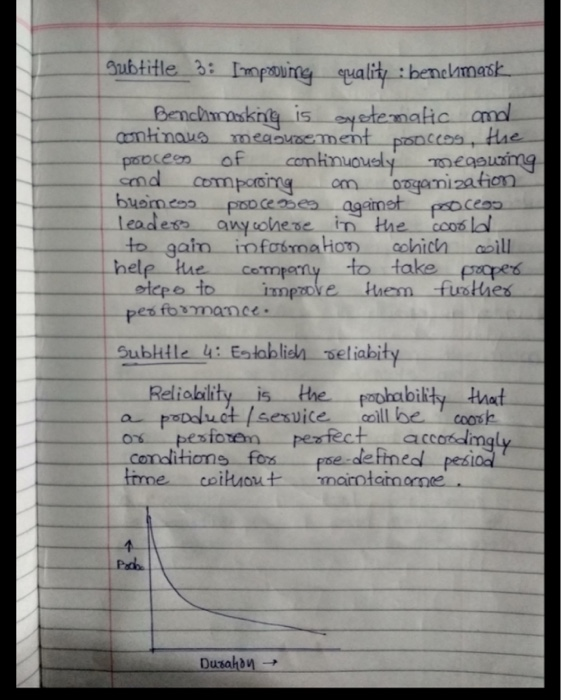 Subtitle 3: Improving quality : benchmark
Benchmarking is systematic and
continous measurement process, the
process of continuously measuring
and comparing an organization
business processes against process
leaders anywhere in the world
to gain information which will
help the company to take proper
steps to improve them further
performance.
Subtitle 4: Establish reliabity
Reliability is the probability that
a product / service will be work
or perform perfect accordingly
conditions for pre-defined period
time without maintainance.
↑
Prob.
Duration →